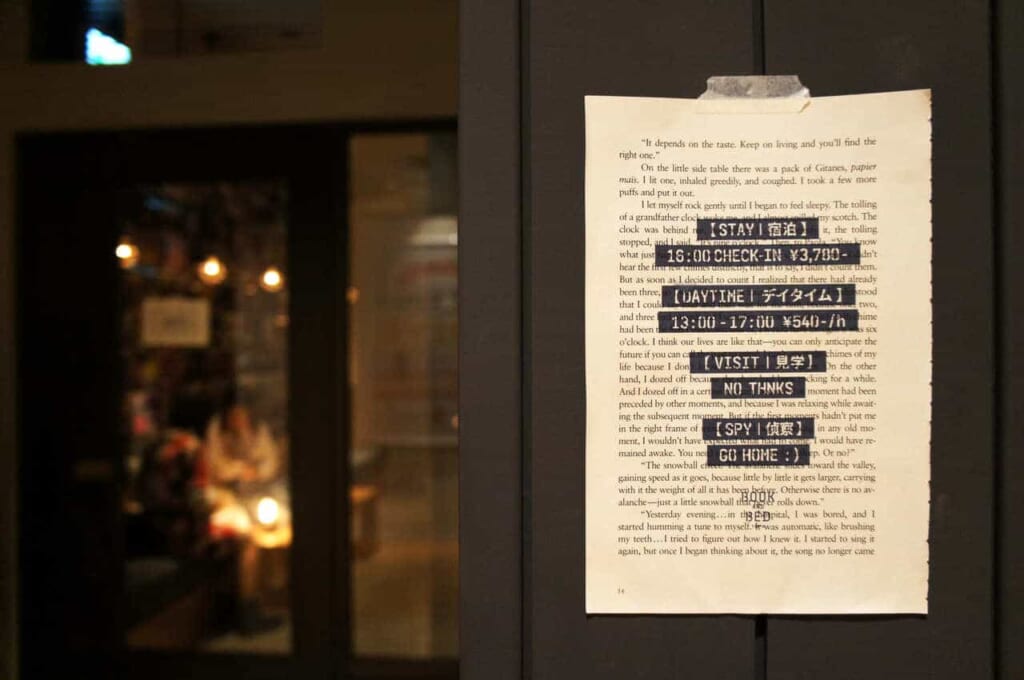 "It depends on the taste. Keep on living and you'll find the
right one."
On the little side table there was a pack of Gitanes, papier
mais. I lit one, inhaled greedily, and coughed. I took a few more
puffs and put it out.
I let myself rock gently until I began to feel sleepy. The tolling
of a grandfather clock woke me, and I almost spilled my scotch. The
clock was behind it, the tolling
【STAY | 宿泊】
stopped, and I said "You know
what just
16:00 CHECK-IN ¥3,780-
hear the first few chimes distinctly, that is to say, I didn't count them.
But as soon as I decided to count I realized that there had already
been three,
【DAYTIME | デイタイム】
that I could two,
and three
13:00-17:00 ¥540-/h
had been six
o'clock. I think our lives are like that—you can only anticipate the
future if you can chimes of my
【VISIT | 見学】
life because I On the other
hand, I dozed off for a while.
NO THNKS
And I dozed off in a moment had been
preceded by other moments, and because I was relaxing while await-
ing the subsequent moment. But if the first moments hadn't put me
in the right frame of in any old mo-
【SPY | 偵察】
ment, I wouldn't have I would have re-
mained awake. You Or no?"
GO HOME :)
"The snowball toward the valley,
gaining speed as it goes, because little by little it gets larger, carrying
with it the weight of all it has been before. Otherwise there is no av-
alanche—just a little snowball that never rolls down."
BOOK
AND
BED
"Yesterday evening…in the hospital, I was bored, and I
started humming a tune to myself. It was automatic, like brushing
my teeth…I tried to figure out how I knew it. I started to sing it
again, but once I began thinking about it, the song no longer came
54